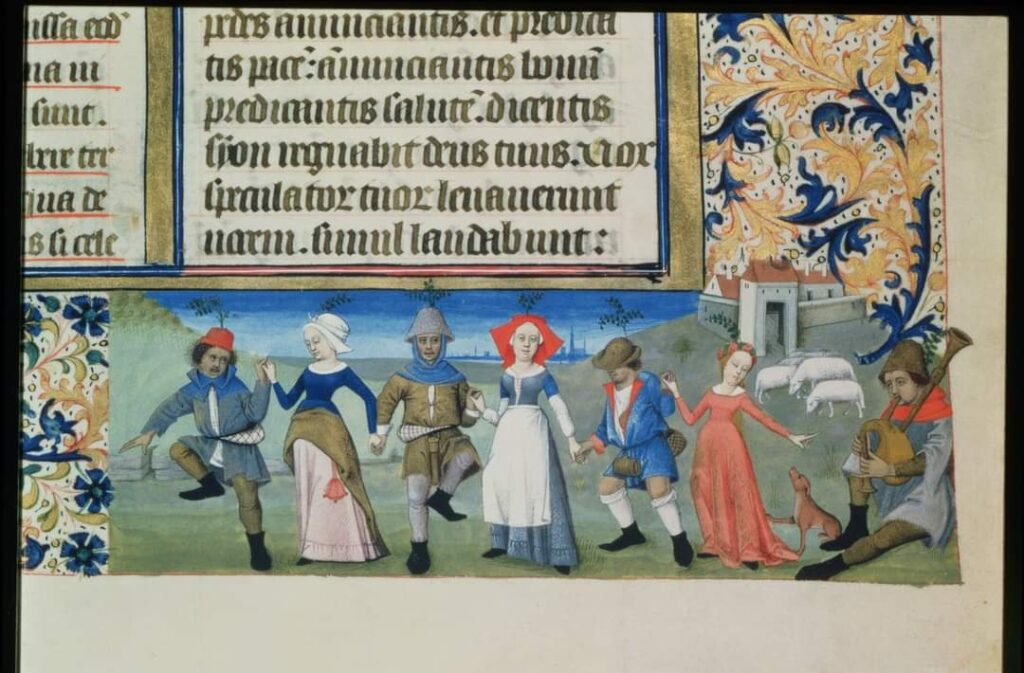 na in
sunt.
ter
qua de
s si cele
pedes annunciantis. et predica
tis pacē: ānunciantis bonū
predicantis salutē. dicentis
syon regnabit deus tuus. Vox
speculatoꝝ tuoꝝ leuauerunt
uocem. simul laudabunt: